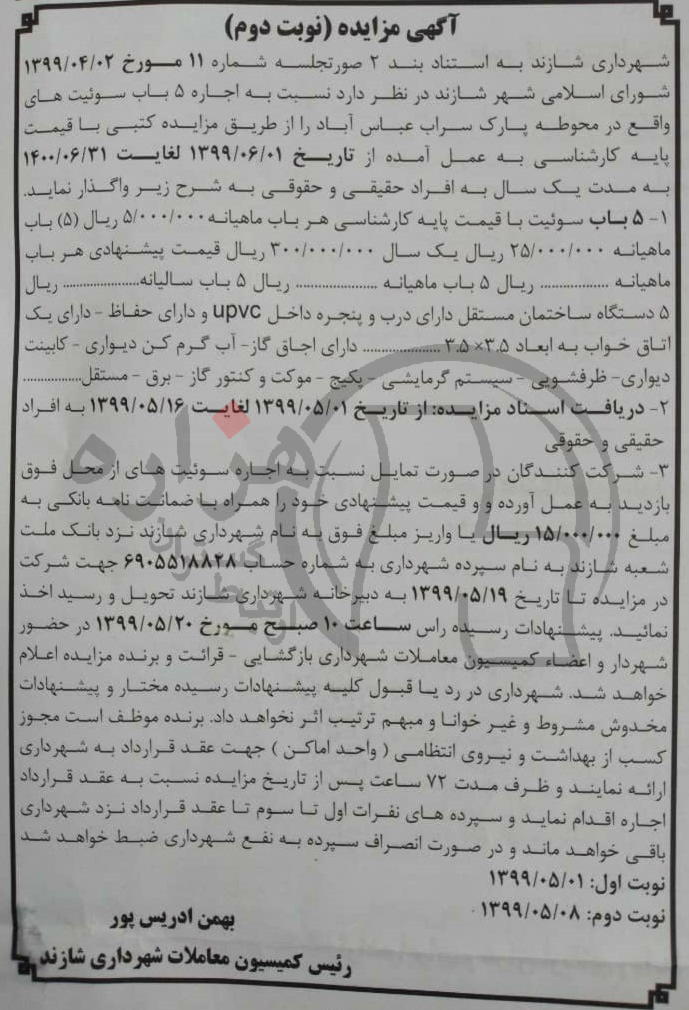 آگهی مزایده (نوبت دوم)
شهرداری شازند به استناد بند ۲ صورتجلسه شماره ۱۱ مورخ ۱۳۹۹/۰۴/۰۲
شورای اسلامی شهر شازند در نظر دارد نسبت به اجاره ۵ باب سوئیت های
واقع در محوطه پارک سراب عباس آباد را از طریق مزایده کتبی با قیمت
پایه کارشناسی به عمل آمده از تاریخ ۱۳۹۹/۰۶/۰۱ لغایت ۱۴۰۰/۰۶/۳۱
به مدت یک سال به افراد حقیقی و حقوقی به شرح زیر واگذار نماید.
۱- ۵ باب سوئیت با قیمت پایه کارشناسی هر باب ماهیانه ۵/۰۰۰/۰۰۰ ریال (۵) باب
ماهیانه ۲۵/۰۰۰/۰۰۰ ریال یک سال ۳۰۰/۰۰۰/۰۰۰ ریال قیمت پیشنهادی هر باب
ماهیانه ................ ریال ۵ باب ماهیانه .................. ریال ۵ باب سالیانه.................. ریال
۵ دستگاه ساختمان مستقل دارای درب و پنجره داخل upvc و دارای حفاظ - دارای یک
اتاق خواب به ابعاد ۳.۵×۳.۵ .................. دارای اجاق گاز- آب گرم کن دیواری - کابینت
دیواری- ظرفشویی - سیستم گرمایشی - پکیج - موکت و کنتور گاز - برق - مستقل..............
۲- دریافت اسناد مزایده: از تاریخ ۱۳۹۹/۰۵/۰۱ لغایت ۱۳۹۹/۰۵/۱۶ به افراد
حقیقی و حقوقی
۳- شرکت کنندگان در صورت تمایل نسبت به اجاره سوئیت های از محل فوق
بازدید به عمل آورده و و قیمت پیشنهادی خود را همراه با ضمانت نامه بانکی به
مبلغ ۱۵/۰۰۰/۰۰۰ ریال یا واریز مبلغ فوق به نام شهرداری شازند نزد بانک ملت
شعبه شازند به نام سپرده شهرداری به شماره حساب ۶۹۰۵۵۱۸۸۲۸ جهت شرکت
در مزایده تا تاریخ ۱۳۹۹/۰۵/۱۹ به دبیرخانه شهرداری شازند تحویل و رسید اخذ
نمائید. پیشنهادات رسیده راس ساعت ۱۰ صبح مورخ ۱۳۹۹/۰۵/۲۰ در حضور
شهردار و اعضاء کمیسیون معاملات شهرداری بازگشایی - قرائت و برنده مزایده اعلام
خواهد شد. شهرداری در رد یا قبول کلیه پیشنهادات رسیده مختار و پیشنهادات
مخدوش مشروط و غیر خوانا و مبهم ترتیب اثر نخواهد داد. برنده موظف است مجوز
کسب از بهداشت و نیروی انتظامی ( واحد اماکن ) جهت عقد قرارداد به شهرداری
ارائه نمایند و ظرف مدت ۷۲ ساعت پس از تاریخ مزایده نسبت به عقد قرارداد
اجاره اقدام نماید و سپرده های نفرات اول تا سوم تا عقد قرارداد نزد شهرداری
باقی خواهد ماند و در صورت انصراف سپرده به نفع شهرداری ضبط خواهد شد
نوبت اول: ۱۳۹۹/۰۵/۰۱
نوبت دوم: ۱۳۹۹/۰۵/۰۸
بهمن ادریس پور
رئیس کمیسیون معاملات شهرداری شازند
هزاره